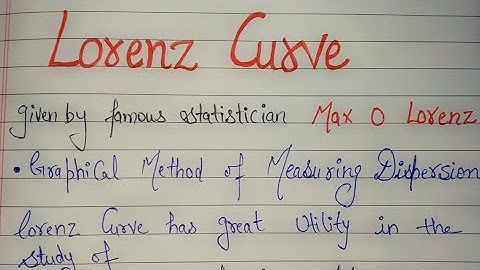 Lorenz Curve
given by famous statistician Max O Lorenz
• Graphical Method of Measuring Dispersion
Lorenz Curve has great Utility in the
study of